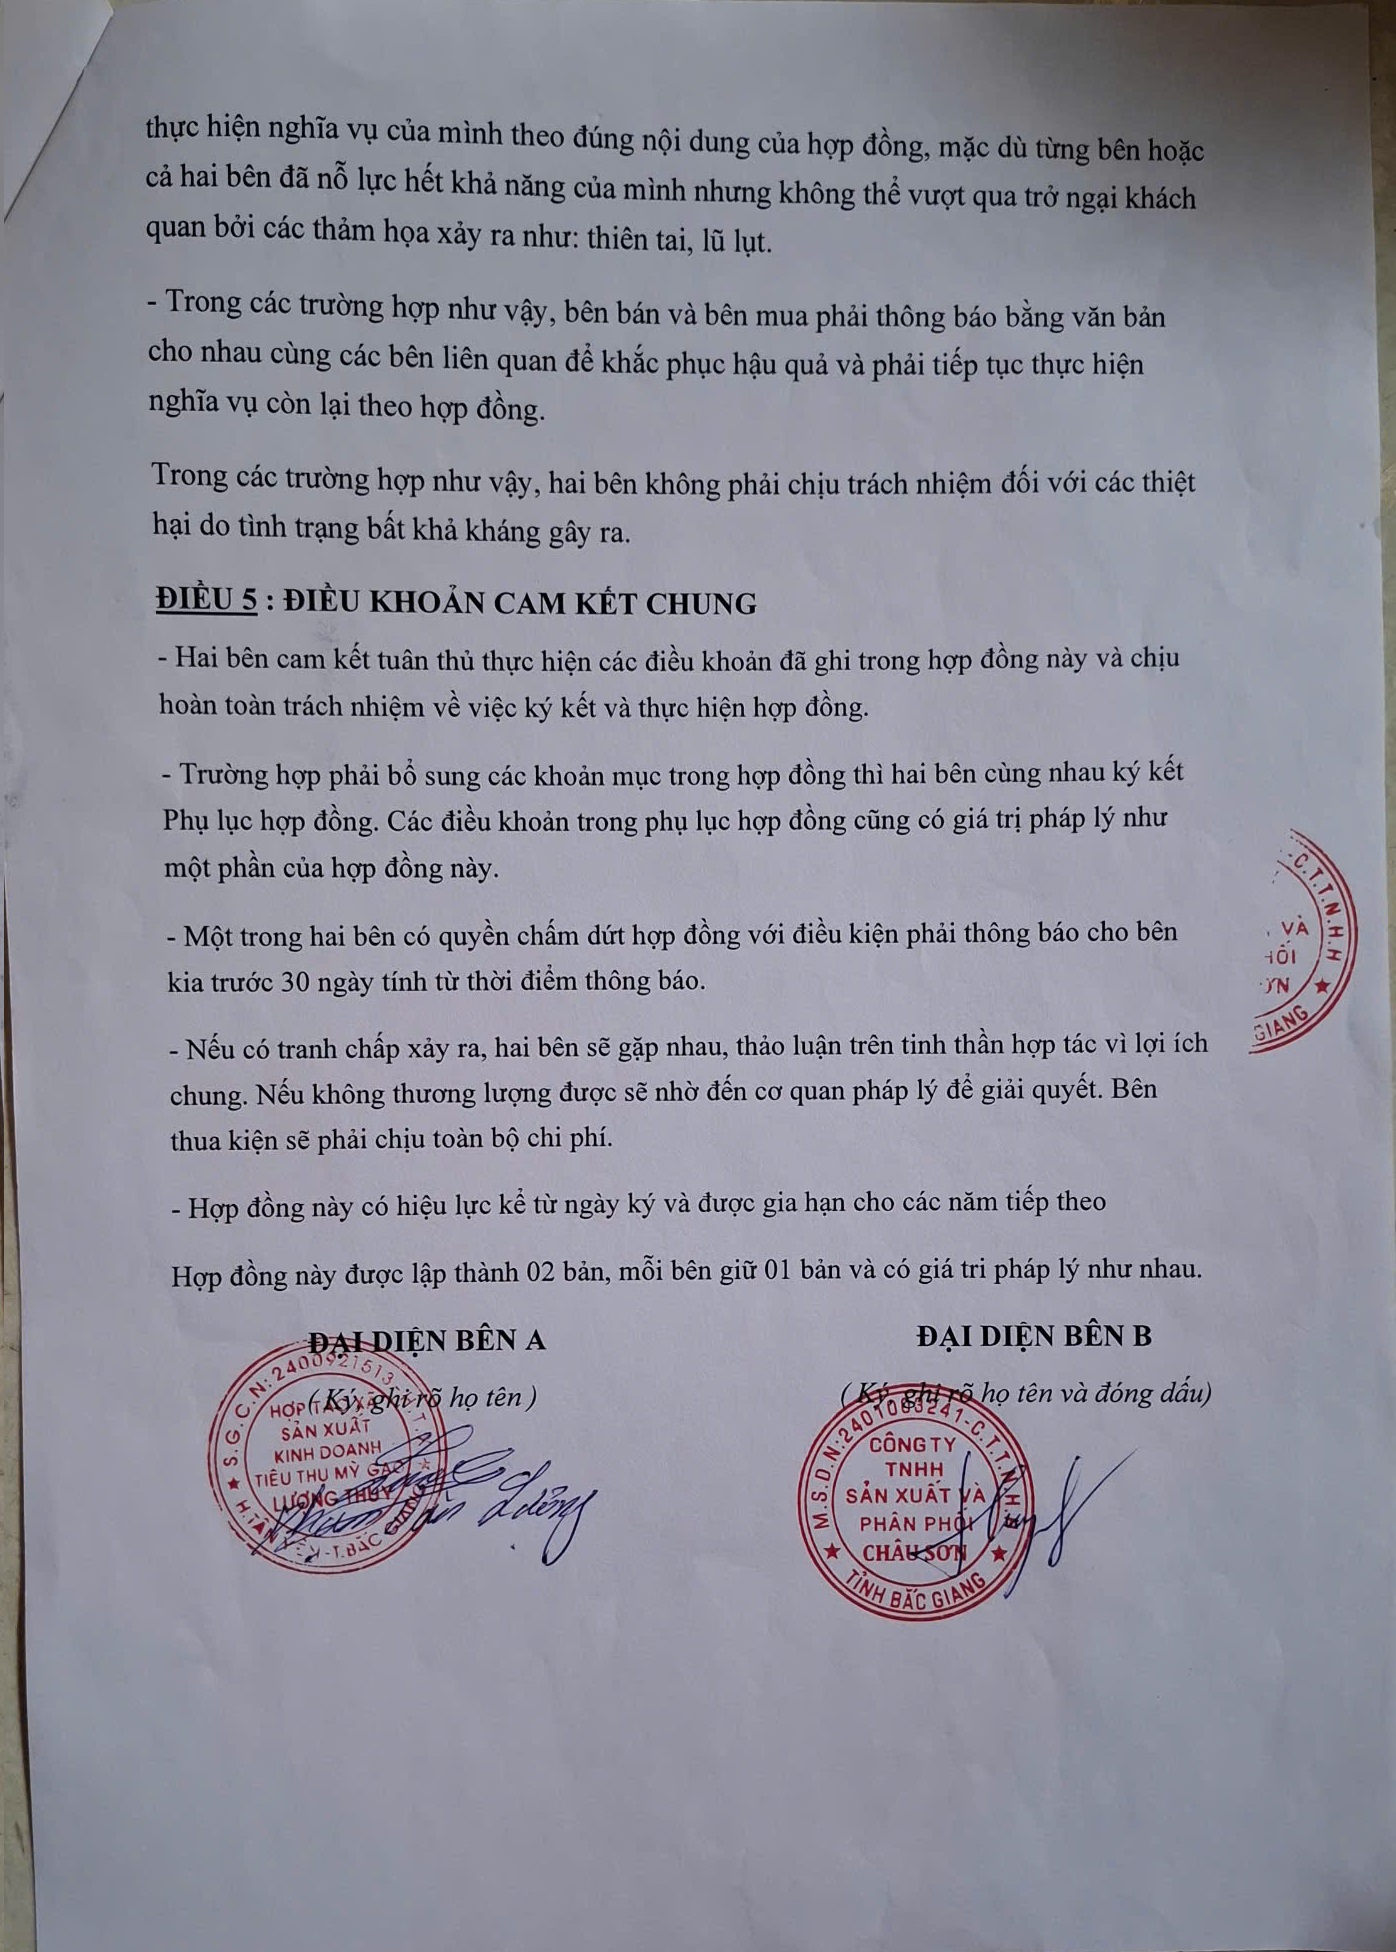 thực hiện nghĩa vụ của mình theo đúng nội dung của hợp đồng, mặc dù từng bên hoặc
cả hai bên đã nỗ lực hết khả năng của mình nhưng không thể vượt qua trở ngại khách
quan bởi các thảm họa xảy ra như: thiên tai, lũ lụt.
- Trong các trường hợp như vậy, bên bán và bên mua phải thông báo bằng văn bản
cho nhau cùng các bên liên quan để khắc phục hậu quả và phải tiếp tục thực hiện
nghĩa vụ còn lại theo hợp đồng.
Trong các trường hợp như vậy, hai bên không phải chịu trách nhiệm đối với các thiệt
hại do tình trạng bất khả kháng gây ra.
ĐIỀU 5 : ĐIỀU KHOẢN CAM KẾT CHUNG
- Hai bên cam kết tuân thủ thực hiện các điều khoản đã ghi trong hợp đồng này và chịu
hoàn toàn trách nhiệm về việc ký kết và thực hiện hợp đồng.
- Trường hợp phải bổ sung các khoản mục trong hợp đồng thì hai bên cùng nhau ký kết
Phụ lục hợp đồng. Các điều khoản trong phụ lục hợp đồng cũng có giá trị pháp lý như
một phần của hợp đồng này.
- Một trong hai bên có quyền chấm dứt hợp đồng với điều kiện phải thông báo cho bên
kia trước 30 ngày tính từ thời điểm thông báo.
-C.T.T.N.H.H
VÀ
GIANG
- Nếu có tranh chấp xảy ra, hai bên sẽ gặp nhau, thảo luận trên tinh thần hợp tác vì lợi ích
chung. Nếu không thương lượng được sẽ nhờ đến cơ quan pháp lý để giải quyết. Bên
thua kiện sẽ phải chịu toàn bộ chi phí.
- Hợp đồng này có hiệu lực kể từ ngày ký và được gia hạn cho các năm tiếp theo
Hợp đồng này được lập thành 02 bản, mỗi bên giữ 01 bản và có giá tri pháp lý như nhau.
ĐẠI DIỆN BÊN A
( Ký, ghi rõ họ tên )
S.G.C.N: 2400921513
HỢP TÁC XÃ
SẢN XUẤT
KINH DOANH
TIÊU THỤ MỲ GẠO
LƯƠNG THỦY
H.TÂN YÊN-T.BẮC GIANG
ĐẠI DIỆN BÊN B
( Ký, ghi rõ họ tên và đóng dấu)
M.S.D.N:2401063241-C.T.T.N.H.H
CÔNG TY
TNHH
SẢN XUẤT VÀ
PHÂN PHỐI
CHÂU SƠN
TỈNH BẮC GIANG